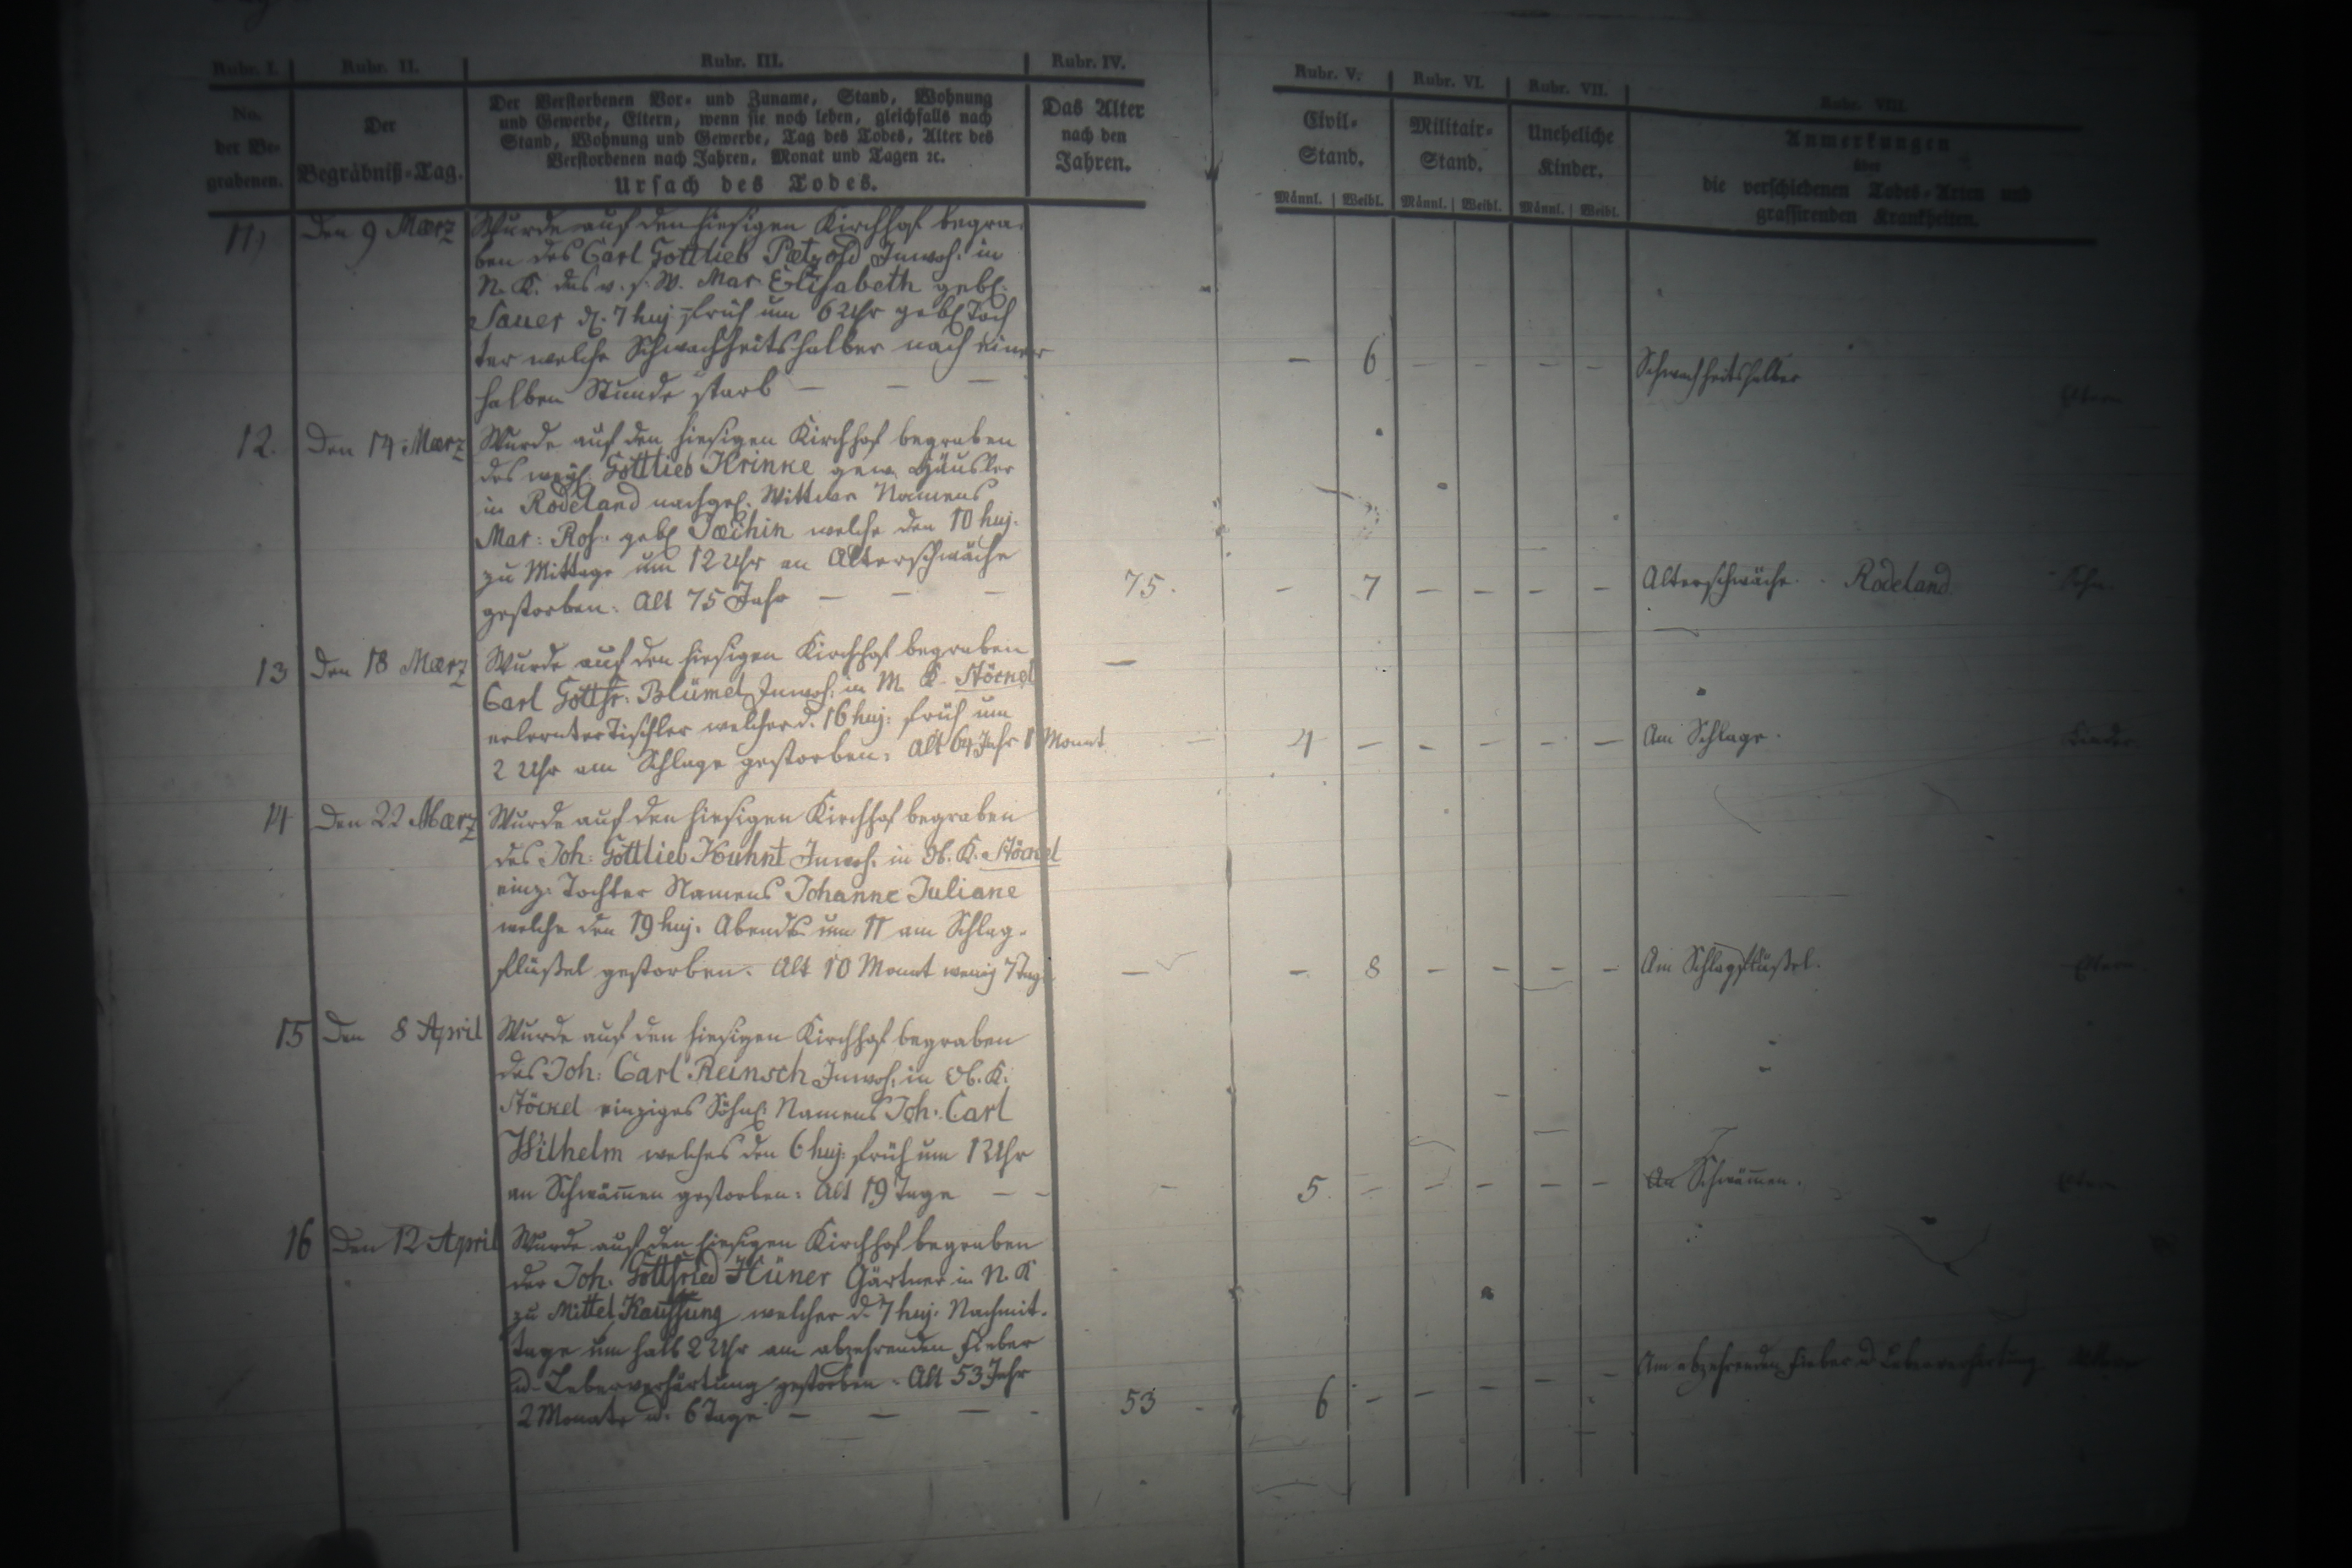 Rubr. I. Rubr. II. Rubr. III. Rubr. IV. Rubr. V. Rubr. VI. Rubr. VII. Rubr. VIII.
No.
der Be-
grabenen.
Der
Begräbniß-Tag.
Der Verstorbenen Vor- und Zuname, Stand, Wohnung
und Gewerbe, Eltern, wenn sie noch leben, gleichfalls nach
Stand, Wohnung und Gewerbe, Tag des Todes, Alter des
Verstorbenen nach Jahren, Monat und Tagen ꝛc.
Ursach des Todes.
Das Alter
nach den
Jahren.
Civil-
Stand.
Männl. Weibl.
Militair-
Stand.
Männl. Weibl.
Uneheliche
Kinder.
Männl. Weibl.
Anmerkungen
über
die verschiedenen Todes-Arten und
grassirenden Krankheiten.
11) Den 9 Mærz Wurde auf den hiesigen Kirchhof begra-
ben des Carl Gottlieb Pætzold Inwoh: in
N. K. das v. s. W. Mar Elisabeth geb.
Sauer d. 7 huj früh um 6 Uhr geb. Toch
ter welche Schwachheitshalber nach einer
halben Stunde starb — — —
— 6 — — — — Schwachheitshalber Eltern
12. Den 14 Mærz Wurde auf den hiesigen Kirchhof begraben
des Gottlieb Krinke gew. Häusler
in Rödeland nachgel. Wittwe Namens
Mar: Ros: geb Jæchin welche den 10 huj.
zu Mittage um 12 Uhr an Alterschwäche
gestorben: Alt 75 Jahr — — —
75. — 7 — — — — Alterschwäche. Rödeland Sohn
13 Den 18 Mærz Wurde auf den hiesigen Kirchhof begraben
Carl Gottfr: Blümel Inwoh: in M. K. Stöckel
erlernter Tischler welcher d. 16 huj: früh um
2 Uhr am Schlage gestorben: Alt 64 Jahr 1 Monat
— 4 — — — — — Am Schlage. Kinder
14 Den 22 Mærz Wurde auf den hiesigen Kirchhof begraben
des Joh: Gottlieb Kuhnt Inwoh: in Ob. K. Stöckel
einz: Tochter Namens Johanne Juliane
welche den 19 huj: Abends um 11 am Schlag-
flüßel gestorben. Alt 10 Monat wenig 7 Tage
— — 8 — — — — Am Schlagflüßel. Eltern
15 Den 8 April Wurde auf den hiesigen Kirchhof begraben
des Joh: Carl Reinsch Inwoh: in Ob. K.
Stöckel einziges Söhnl: Namens Joh: Carl
Wilhelm welches den 6 huj: früh um 1 Uhr
an Schwäm̄en gestorben: Alt 19 Tage — —
— 5. — — — — — An Schwäm̄en. Eltern
16 Den 12 April Wurde auf den hiesigen Kirchhof begraben
der Joh: Gottfried Hüner Gärtner in N. K
zu Mittel Kauffung welcher d. 7 huj: Nachmit-
tage um halb 2 Uhr am abzehrenden Fieber
u. Leberverhärtung gestorben: Alt 53 Jahr
2 Monate u. 6 Tage — — — -
53 6 — — — — — Am abzehrenden Fieber u Leberverhärtung